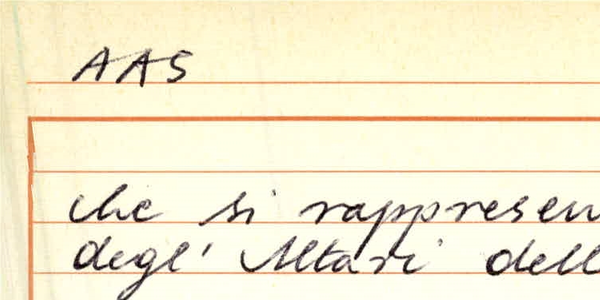 AAS
che si rappresen
degl' Altari dell